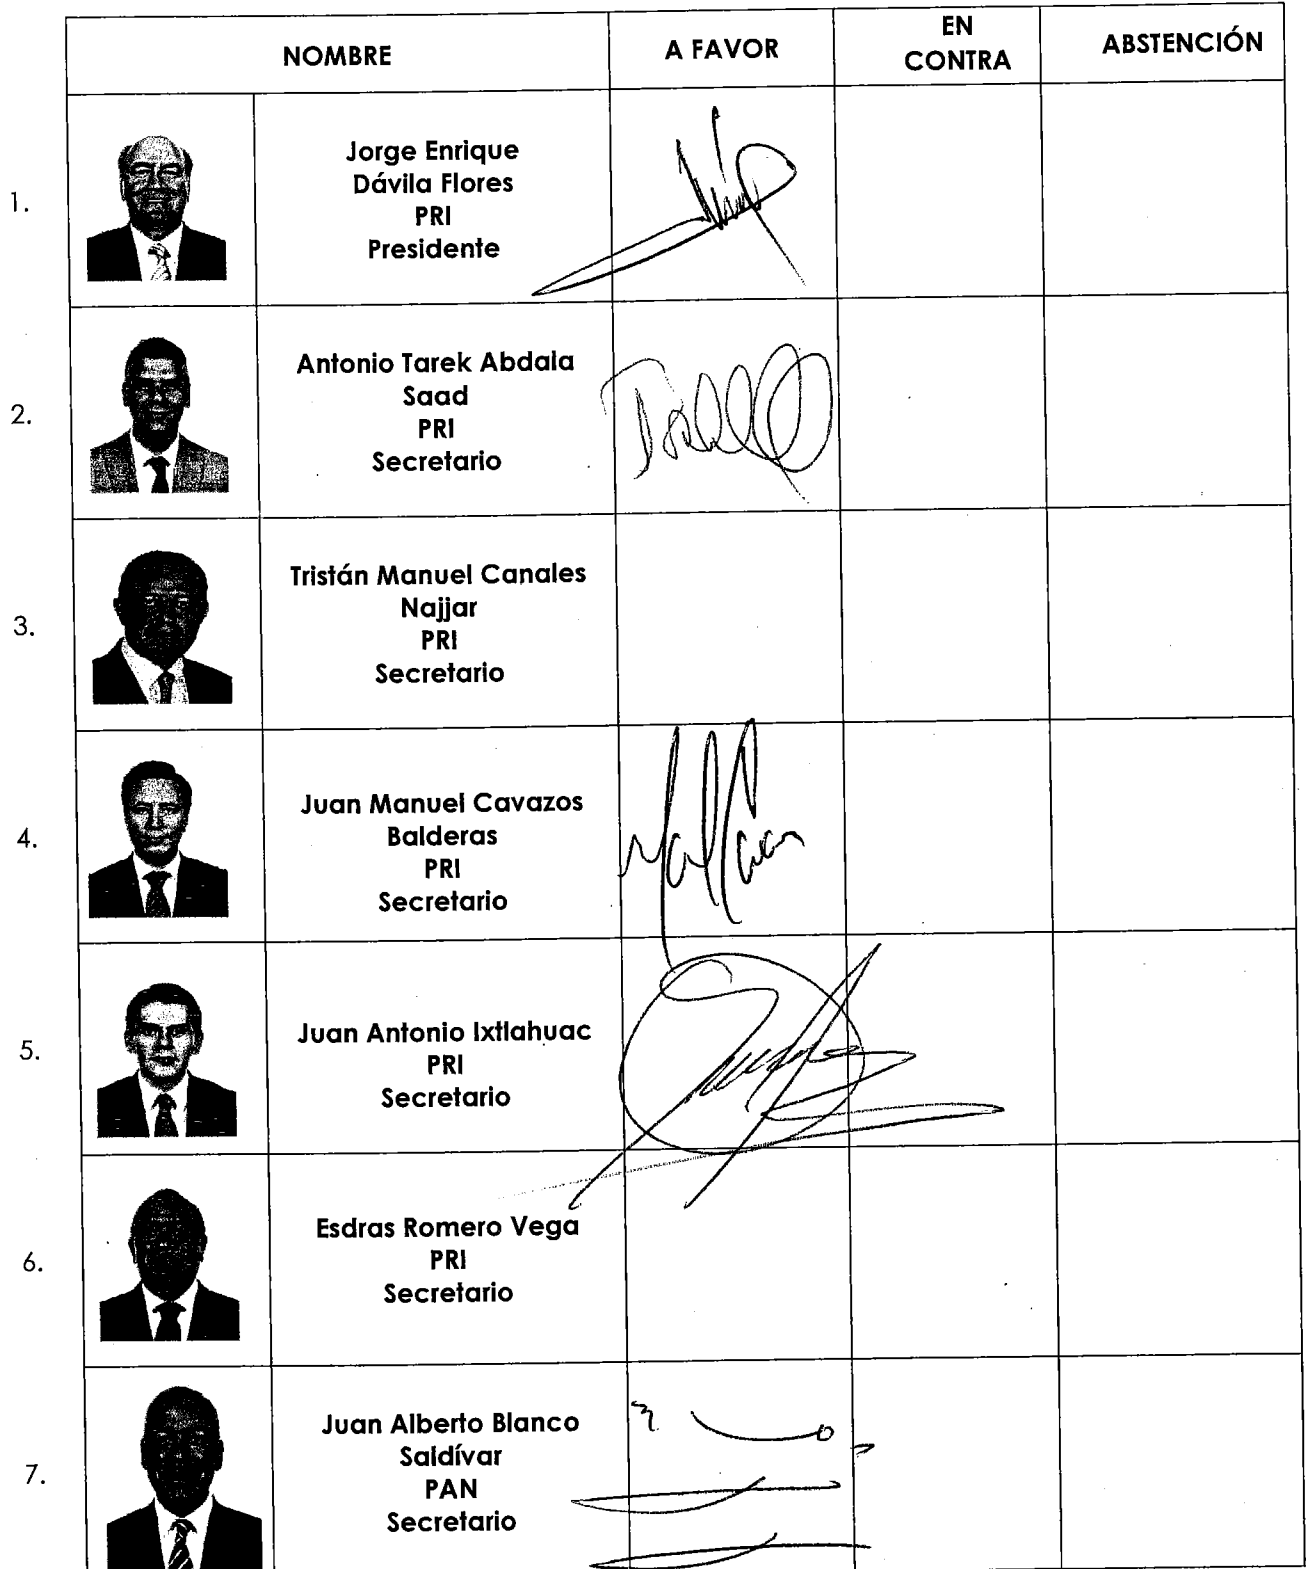 NOMBRE
A FAVOR
EN
CONTRA
ABSTENCIÓN
1.
Jorge Enrique
Dávila Flores
PRI
Presidente
2.
Antonio Tarek Abdala
Saad
PRI
Secretario
3.
Tristán Manuel Canales
Najjar
PRI
Secretario
4.
Juan Manuel Cavazos
Balderas
PRI
Secretario
5.
Juan Antonio Ixtlahuac
PRI
Secretario
6.
Esdras Romero Vega
PRI
Secretario
7.
Juan Alberto Blanco
Saldívar
PAN
Secretario